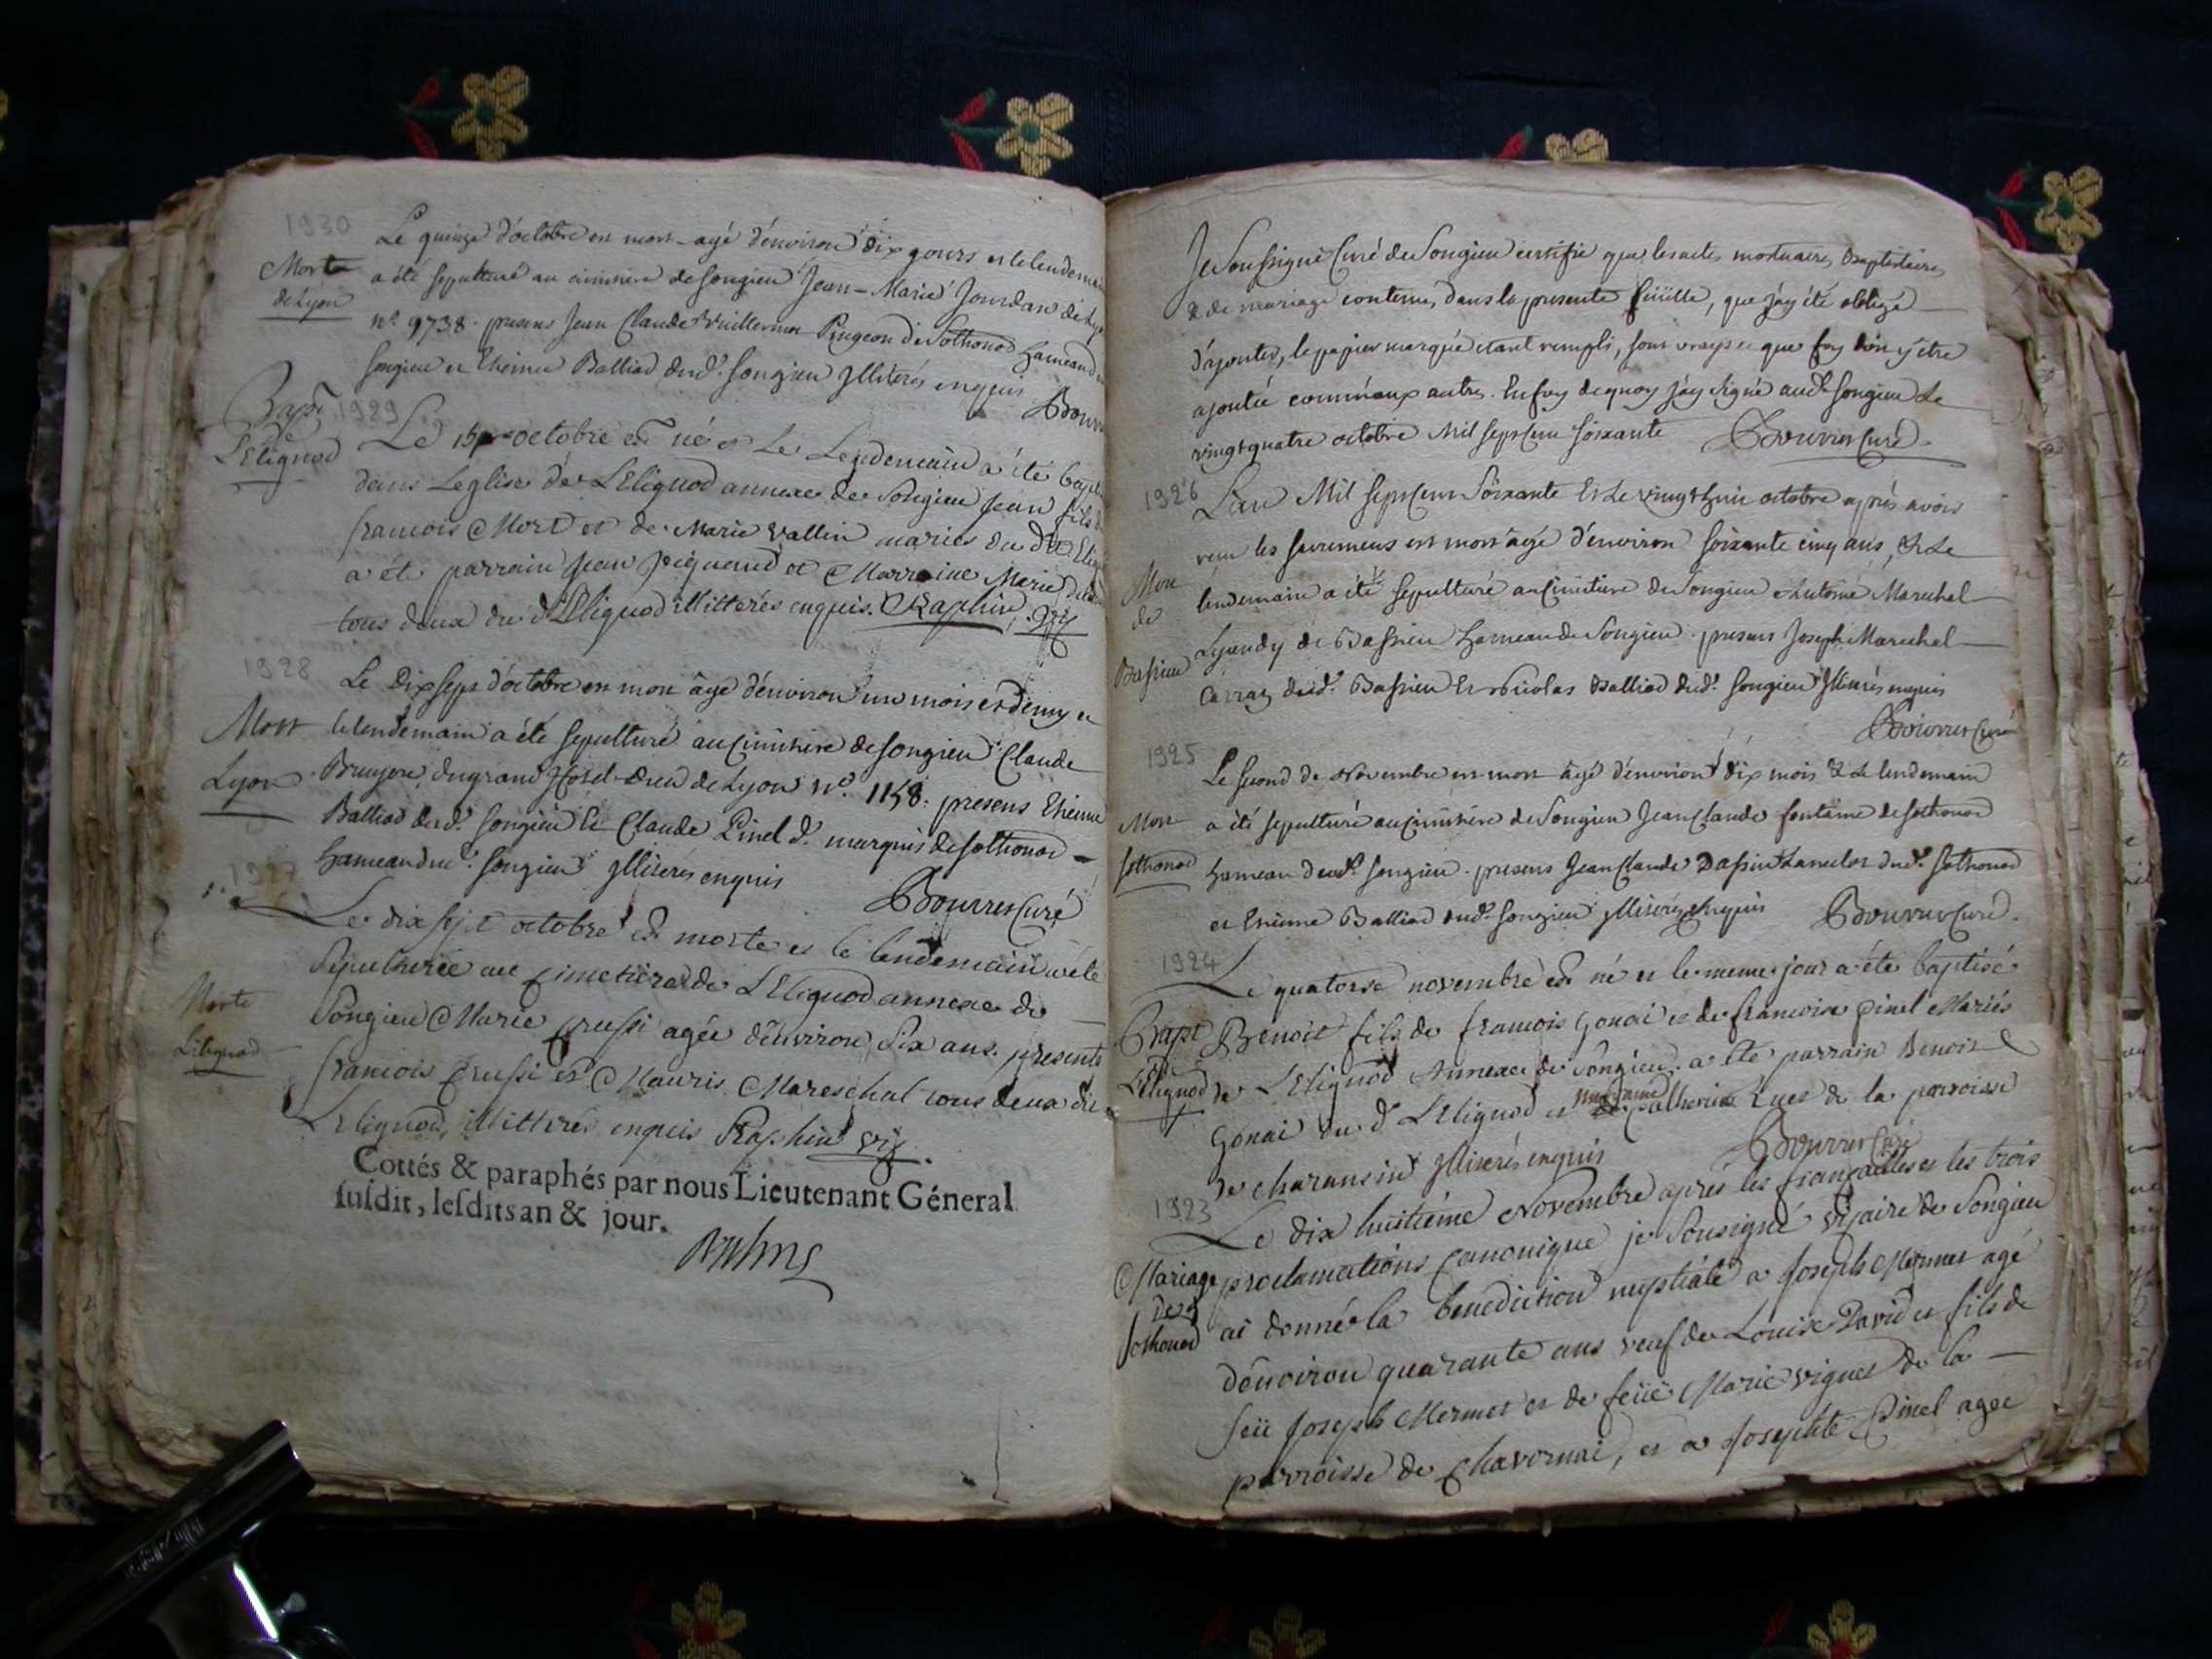 1930
Le quinze d'octobre est mort agé d'environ dix jours et le lendemain
Mort
de Lyon
a été sepulturé au cimitiere de songieu Jean-Marie Jourdan de Lyon
n.º 9738. presens Jean Claude Vuillermoz Pingeon de Sothonod hameau
songieu et Etienne Balliad dud.t songieu Illiterés enquis
Bourr
Bapt
1929
de
L'Elignod
Le 15 octobre est né et le lendemain a été bapt
dans Leglise de L'Elignod annexe de Songieu jean fils
francois Mort et de Marie vallin mariés du dit Elig
a été parrain jean et Marraine Marie
tous deux du d.t L'Elignod illitterés enquis. Raphin, vic
1928
Le dix sept d'octobre est mort âgé d'environ un mois et demy et
Mort
Lyon
le lendemain a été sepulturé au cimitiere de songieu Claude
Bruyere du grand Hotel-Dieu de Lyon n.º 1158. presens Etienne
Balliad dud.t songieu et Claude Pinel d.t marquis de sothonod
hameau dud.t songieu Illiterés enquis
Bourrer Curé
1927
Le dix sept octobre est morte et le lendemain a été
Sepulturée au cimetiere de L'Elignod annexe de
Morte
Lelignod
Songieu Marie Crussi agée d'environ six ans. presents
francois Crussi et Mauris Mareschal tous deux du
Lelignod, illitterés enquis Raphin vic
Cottés & paraphés par nous Lieutenant Géneral
susdit, lesdits an & jour.
Je Soussigné Curé de Songieu certifie que les actes mortuaires, Baptistaires,
& de mariage contenus dans la presente füille, que j'ay été obligé
d'ajouter, le papier marqué etant rempli, sont vrays et que foy doit y etre
ajoutée comme aux autres. En foy de quoy j'ay signé aud.t songieu le
vingt quatre octobre Mil sept cent soixante Bourrer Curé.
1926
L'an Mil sept cent Soixante Et le vingt huit octobre après avoir
reçu les sacremens est mort âgé d'environ soixante cinq ans, & le
Mort
de
Bassieu
lendemain a été sepulturé au cimitiere de Songieu Antoine Marechal
Lyandy de Bassieu hameau de Songieu. presens Joseph Marechal
Carraz dud.t Bassieu Et Nicolas Balliad dud.t songieu Illiterés enquis
Bourrer Curé
1925
Le second de Novembre est mort âgé d'environ dix mois & le lendemain
Mort
sothonod
a été sepulturé au cimitiere de Songieu Jean Claude fontaine de sothonod
hameau dud.t songieu. presens Jean Claude Dassin Lancelot dud.t Sothonod
et Etienne Balliad dud.t songieu illiterés Enquis Bourrer Curé.
1924
Le quatorse novembre est né et le meme jour a été baptisé
Bapt
L'Elignod
Benoit fils de francois Gonai et de francoise pinel Mariés
de L'Elignod Annexe de Songieu. a été parrain Benoit
Gonai du d.t L'Elignod et marraine Catherine Luce de la parroisse
de Charansin Illiterés enquis Bourrer Curé
1923
Le dix huitiéme Novembre après les fiançailles et les trois
Mariage
de
sothonod
proclamations canonique je Sousigné vicaire de Songieu
ai donné la benediction nuptiale a Joseph Mermet agé
d'environ quarante ans veuf de Louise David et fils de
feü Joseph Mermet et de feüe Marie vignet de la
parroisse de Chavornai, et a Josephte Pinel agée